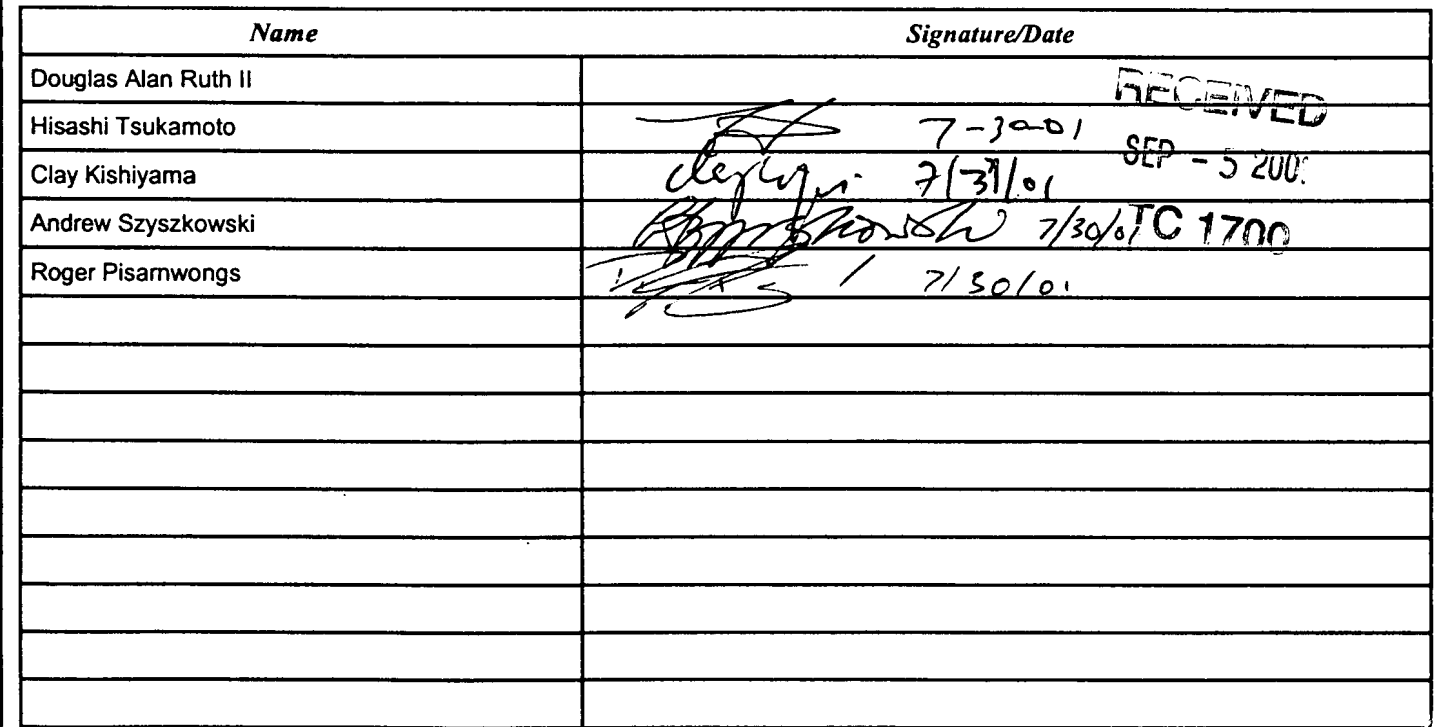 Name Signature/Date
Douglas Alan Ruth II
RECEIVED
Hisashi Tsukamoto 7-30-01
SEP - 5 200
Clay Kishiyama
Andrew Szyszkowski 7/30/01 TC 1700
Roger Pisarnwongs 7/30/01